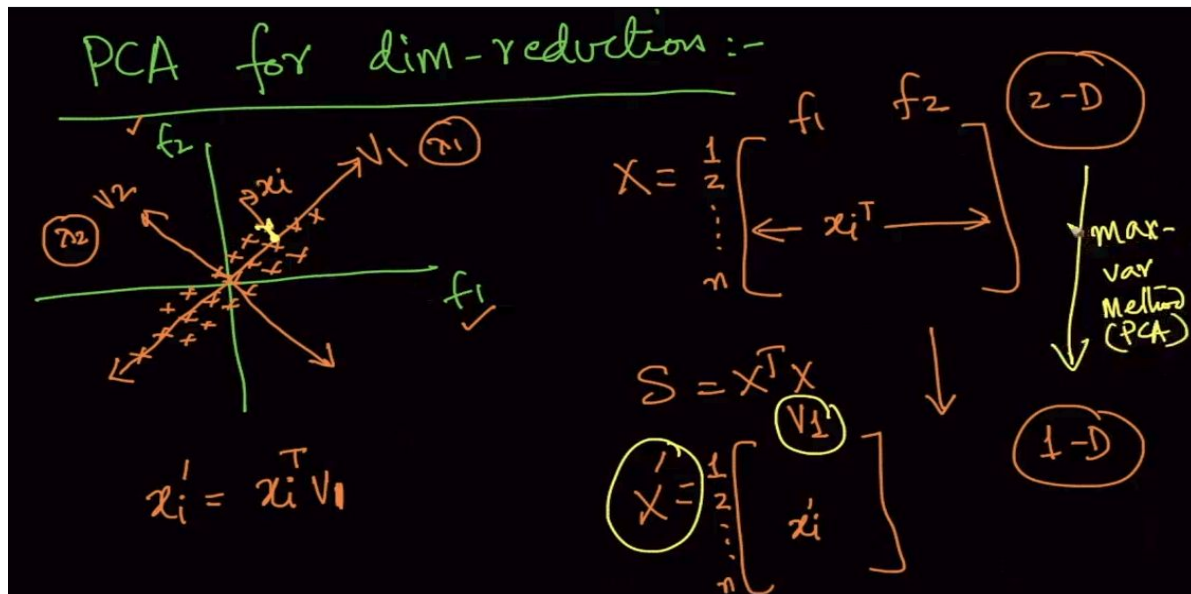 PCA for dim-reduction:-
f2
V1 λ1
xi
V2
λ2
f1
xi' = xi^T V1
f1 f2
X = 1 2 n
xi^T
2-D
max-
var
Method
(PCA)
S = X^T X
V1
X' = 1 2 n
xi'
1-D